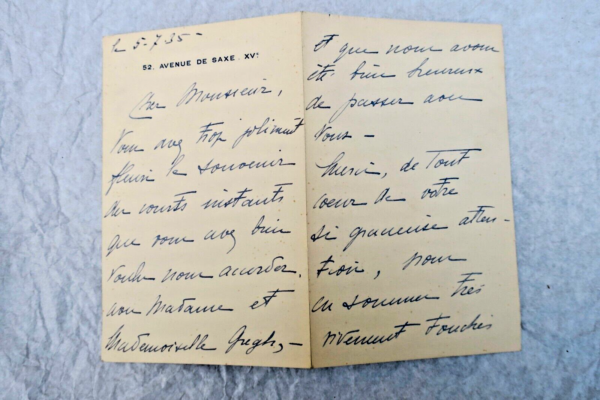 le 5-7-35-
52. AVENUE DE SAXE. XVᵉ
Cher Monsieur,
Vous avez trop joliment
fleuri le souvenir
des courts instants
que vous avez bien
voulu nous accorder,
avec Madame et
Mademoiselle Gregh,-
Et que nous avons
été bien heureux
de passer avec
Vous-
Merci, de Tout
coeur de votre
si gracieuse atten-
tion, nous
en sommes très
vivement Touchés